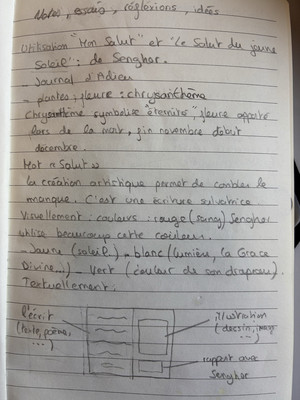 Notes, essais, réflexions, idées
Utilisation "Mon Salut" et "Le Salut du jeune
Soleil": de Senghor.
- Journal d'Adieu
- plantes; fleure: chrysanthème
Chrysanthème symbolise éternité" fleure apporté
lors de la mort, fin novembre début
décembre.
Mot « Salut »
la création artistique permet de combler le
manque. C'est une écriture salvatrice.
Visuellement: couleurs: rouge (sang) Senghor
utilise beaucoup cette couleur.
- Jaune (soleil) - blanc (lumière, la Grace
Divine...) - Vert (couleur de son drapeau).
Textuellement:
l'écrit
(texte, poème,
...)
illustration
(dessin, image
...)
rapport avec
Senghor